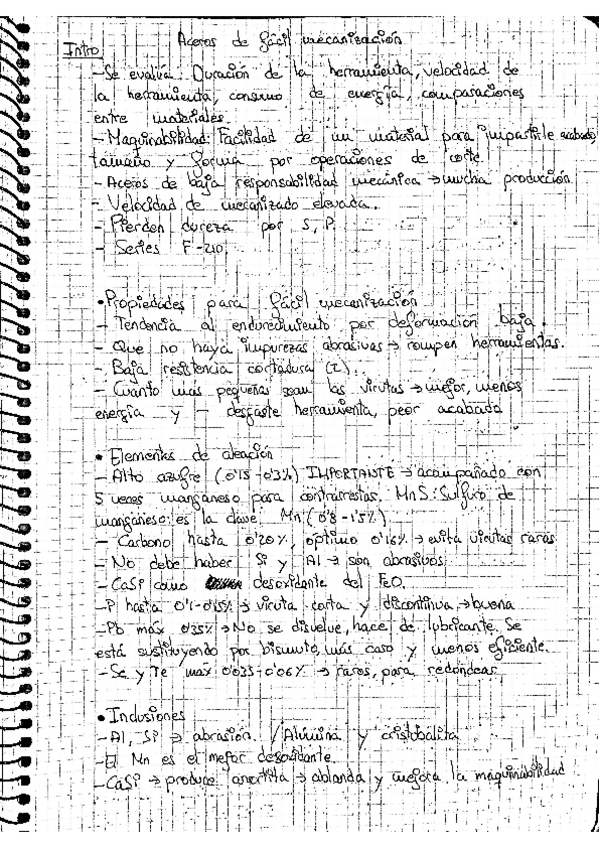 Aceros de fácil mecanización
Intro
- Se evalúa: Duración de la herramienta, velocidad de
la herramienta, consumo de energía, comparaciones
entre materiales.
- Maquinabilidad: Facilidad de un material para impartirle acabado,
tamaño y forma por operaciones de corte.
- Aceros de baja responsabilidad mecánica → mucha producción.
- Velocidad de mecanizado elevada.
- Pierden dureza por S, P.
- Series F-210.
• Propiedades para fácil mecanización
- Tendencia al endurecimiento por deformación baja.
- Que no haya impurezas abrasivas → rompen herramientas.
- Baja resistencia cortadura (τ).
- Cuanto más pequeñas sean las virutas → mejor, menos
energía y - desgaste herramienta, peor acabado
• Elementos de aleación
- Alto azufre (0'15-0'3%) IMPORTANTE → acompañado con
5 veces manganeso para contrarrestar. MnS: Sulfuro de
manganeso: es la clave. Mn (0'8-1'5%)
- Carbono hasta 0'20%, optimo 0'16% → evita virutas raras
- No debe haber Si y Al → son abrasivos
- CaSi como desoxidante del FeO.
- P hasta 0'1-0'15% → viruta corta y discontinua → buena
- Pb máx 0'35% → No se disuelve, hace de lubricante. Se
está sustituyendo por bismuto, más caro y menos eficiente.
- Se y Te máx 0'035-0'06% → raros, para redondear.
• Inclusiones
- Al, Si → abrasión. / Alúmina y cristobalita
- El Mn es el mejor desoxidante.
- CaSi → produce anortita → ablanda y mejora la maquinabilidad